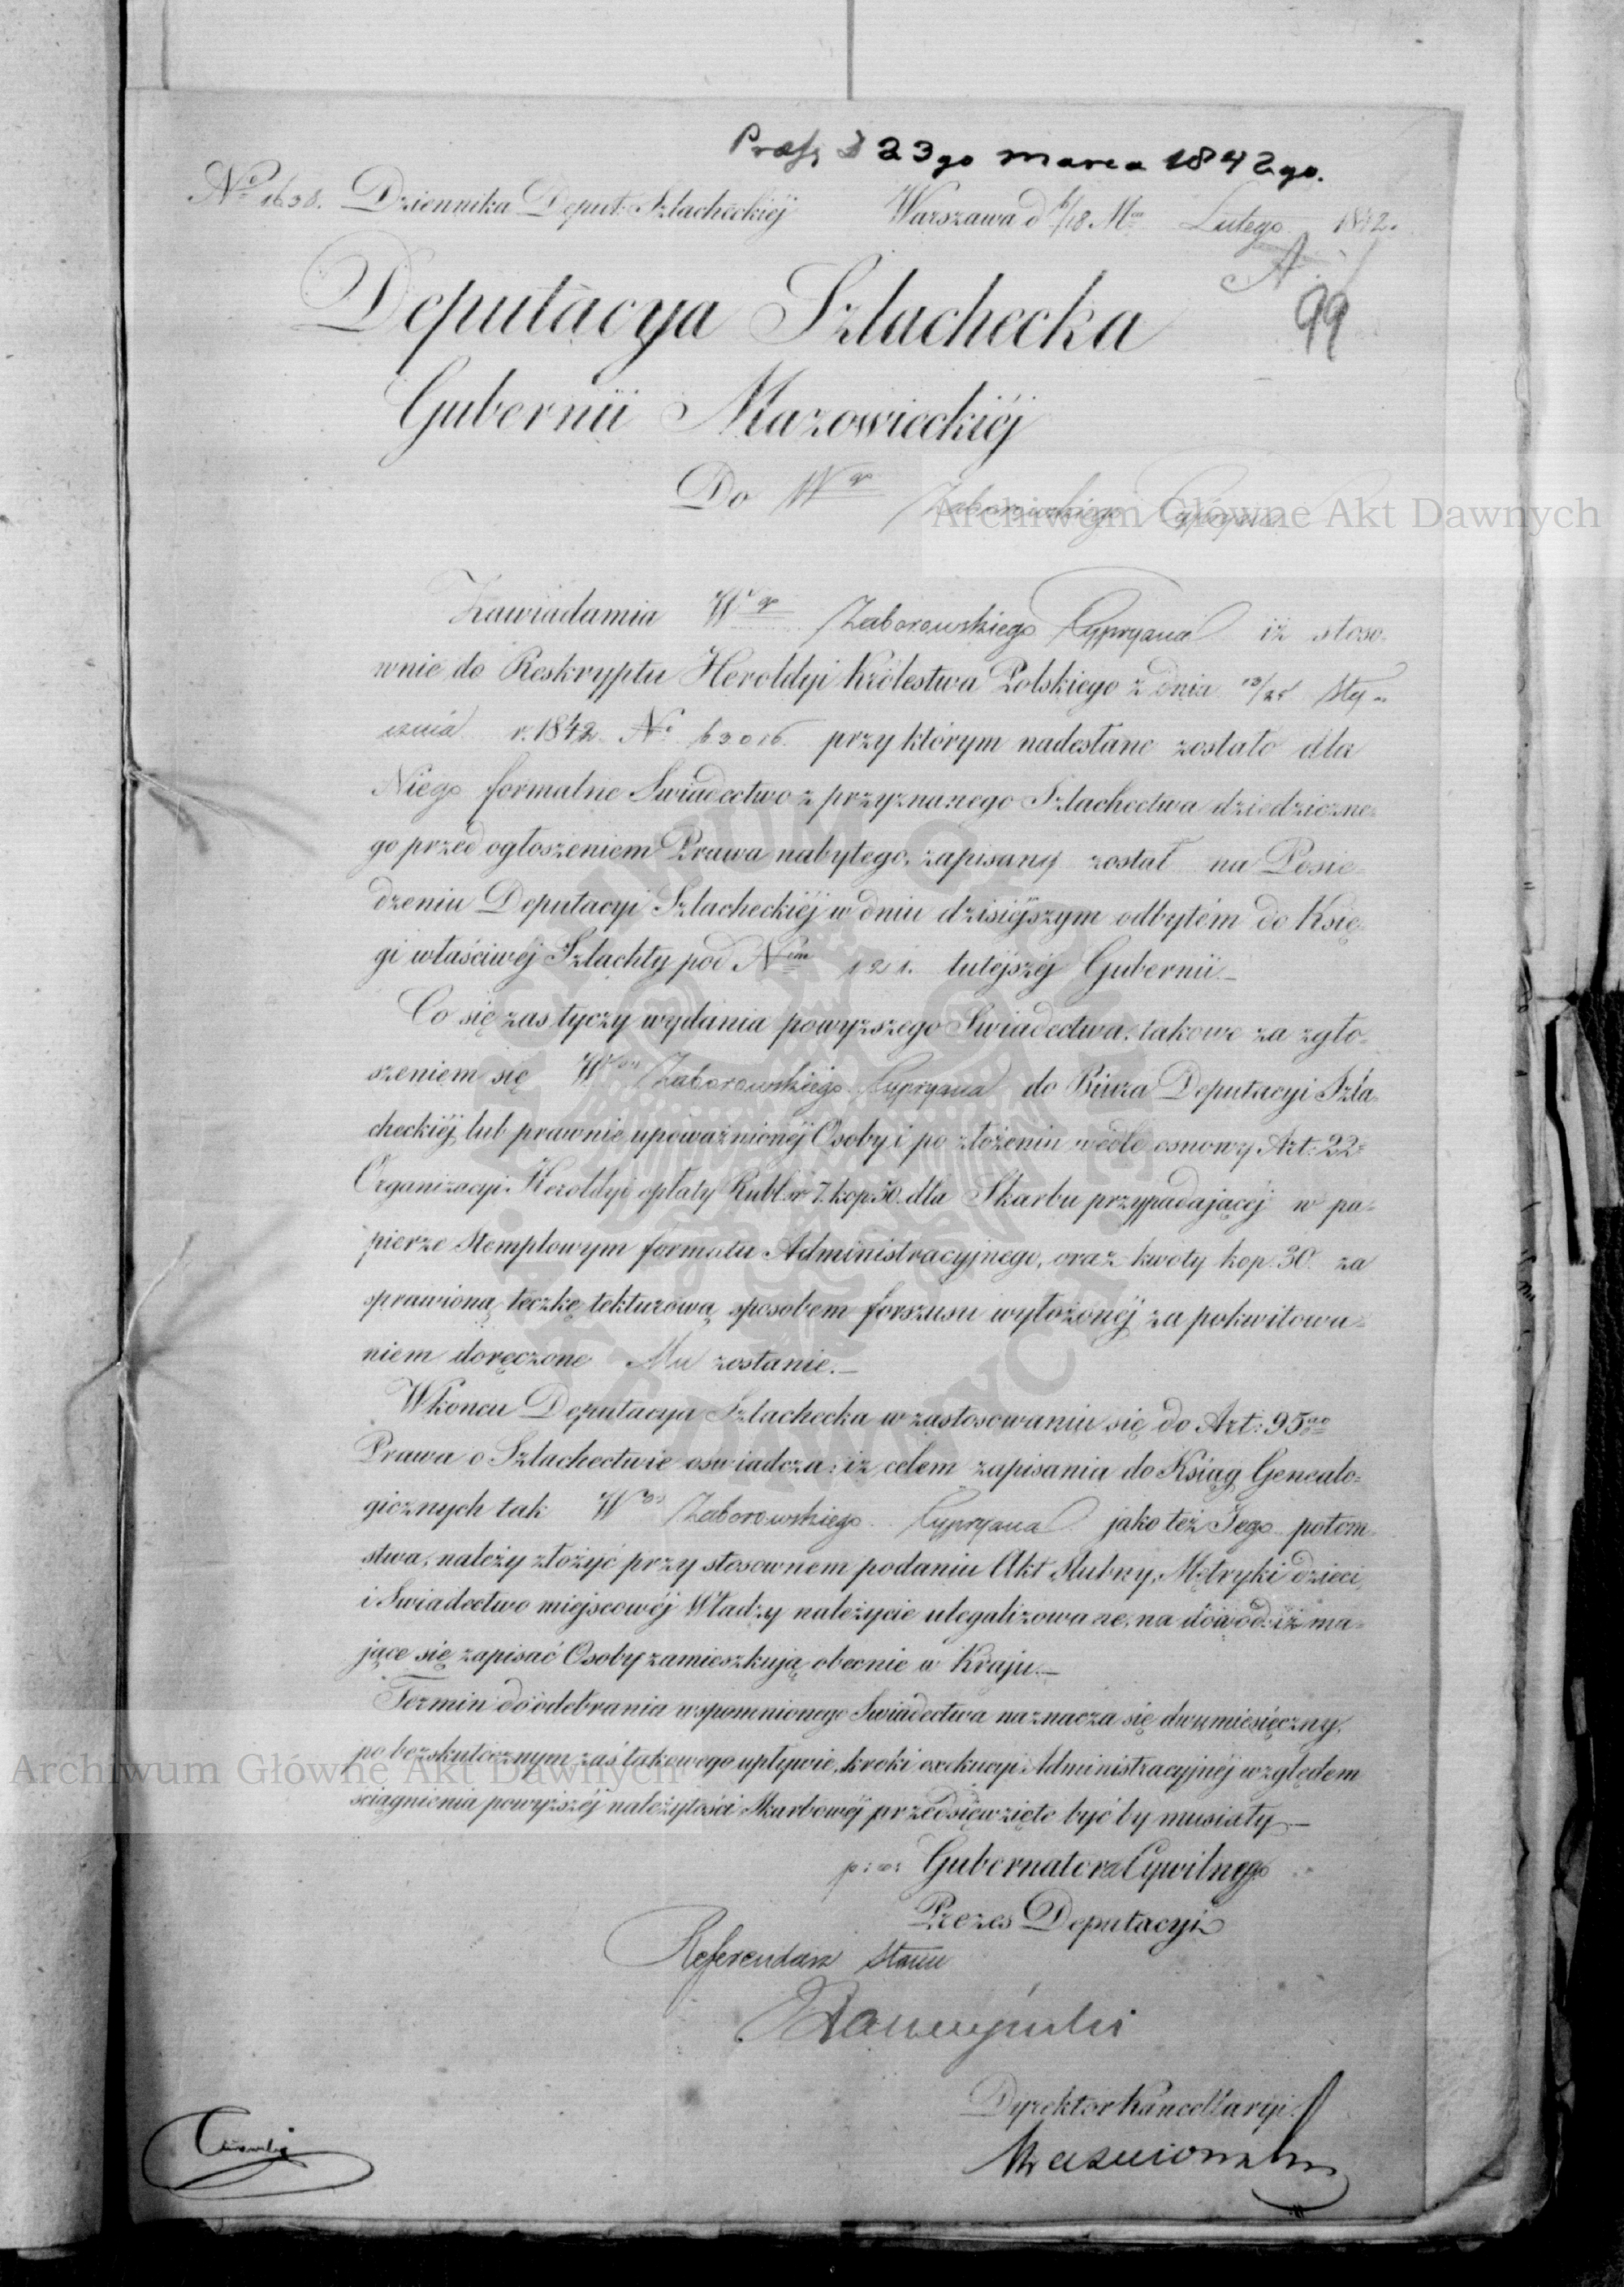 Præs d 23go marca 1842go.
No 1638. Dziennika Deput: Szlacheckiéj Warszawa d 6/18 Mca Lutego 1842.
A
99
Deputacya Szlachecka
Gubernii Mazowieckiéj
Do Wgo Zaborowskiego Cypryana
Archiwum Główne Akt Dawnych
Zawiadamia Wgo Zaborowskiego Cypryana iż stoso=
wnie do Reskryptu Heroldyi Królestwa Polskiego z dnia 13/25 Sty=
cznia r. 1842 No 63016 przy którym nadesłane zostało dla
Niego formalne Swiadectwo z przyznanego Szlachectwa dziedziczne=
go przed ogłoszeniem Prawa nabytego, zapisany został na Posie=
dzeniu Deputacyi Szlacheckiéj w dniu dzisiéjszym odbytém do Księ=
gi właściwéj Szlachty pod Nrem 121. tutéjszéj Gubernii._
Co się zas tyczy wydania powyzszego Swiadectwa, takowe za zgło=
szeniem się Wgo Zaborowskiego Cypryana do Biura Deputacyi Szla=
checkiéj, lub prawnie upoważnionéj Osoby i po złożeniu wedle osnowy Art: 22=
Organizacyi Heroldyi opłaty Rubl. sr 7. kop 50. dla Skarbu przypadającéj w pa=
pierze stemplowym formatu Administracyjnego, oraz kwoty kop. 30. za
sprawioną teczkę tekturową sposobem forszusu wyłożonéj za pokwitowa=
niem doręczone Mu zostanie._
Wkońcu Deputacya Szlachecka w zastosowaniu się do Art: 95go
Prawa o Szlachectwie oswiadcza: iz celem zapisania do Ksiąg Genealo=
gicznych tak Wgo Zaborowskiego Cypryana jako też Jego potom=
stwa, należy złożyć przy stosownem podaniu Akt Slubny, Metryki dzieci,
i Swiadectwo miejscowéj Władzy należycie ulegalizowane, na dowód: iż ma=
jące się zapisać Osoby zamieszkują obecnie w Kraju._
Termin do odebrania wspomnionego Swiadectwa naznacza się dwumiesięczny,
po bezskutecznym zaś takowego upływie, kroki exekucyi Administracyjnéj względem
Archiwum Główne Akt Dawnych
sciągnienia powyższéj należytości Skarbowéj przedsięwzięte być by musiały._
p: o: Gubernatora Cywilnego
Prezes Deputacyi
Referendarz Stanu
Dyrektor Kancellaryi
ARCHIWUM GŁÓWNE AKT DAWNYCH